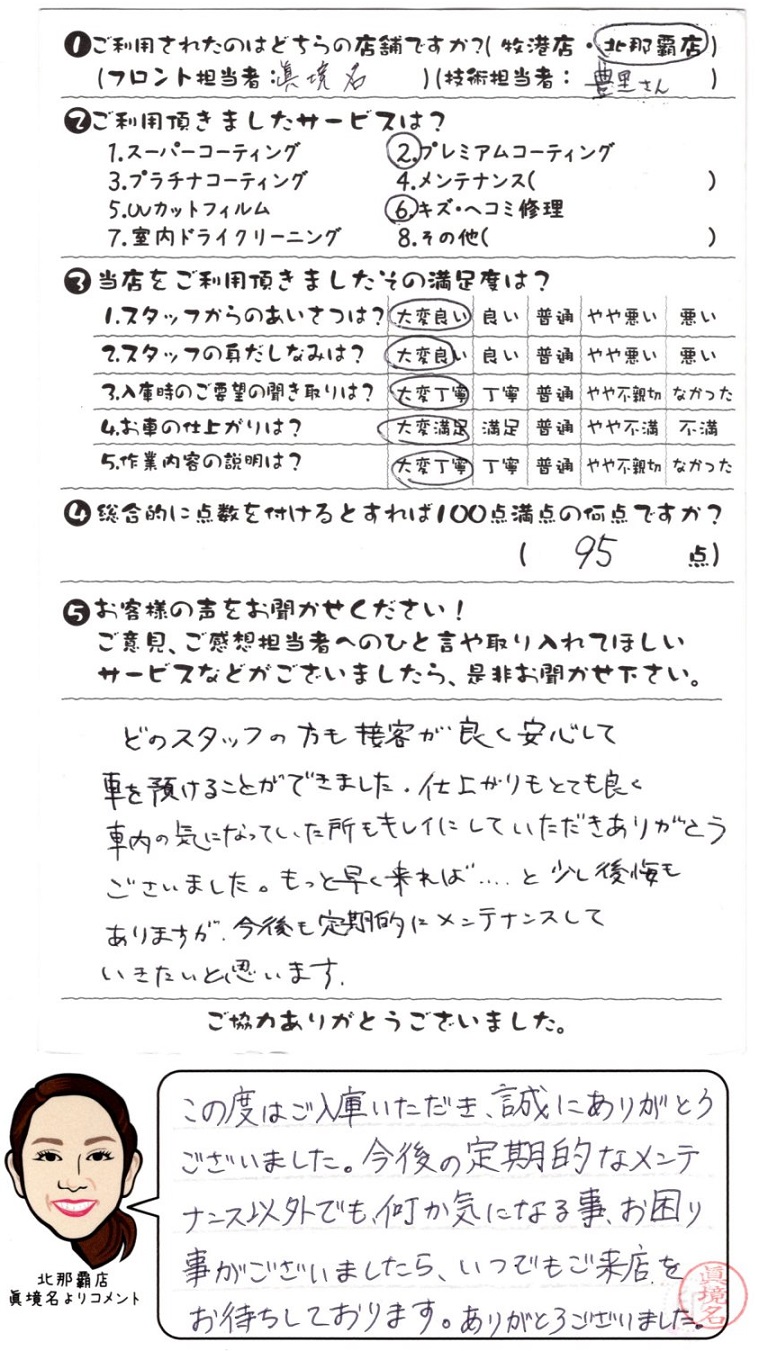 ❶ご利用されたのはどちらの店舗ですか?( 牧港店・北那覇店)
(フロント担当者:眞境名 )(技術担当者: 豊里さん )
❷ご利用頂きましたサービスは?
1.スーパーコーティング 2.プレミアムコーティング
3.プラチナコーティング 4.メンテナンス( )
5.UVカットフィルム 6.キズ・ヘコミ修理
7.室内ドライクリーニング 8.その他( )
❸当店をご利用頂きましたその満足度は?
1.スタッフからのあいさつは? 大変良い 良い 普通 やや悪い 悪い
2.スタッフの身だしなみは? 大変良い 良い 普通 やや悪い 悪い
3.入庫時のご要望の聞き取りは? 大変丁寧 丁寧 普通 やや不親切 なかった
4.お車の仕上がりは? 大変満足 満足 普通 やや不満 不満
5.作業内容の説明は? 大変丁寧 丁寧 普通 やや不親切 なかった
❹総合的に点数を付けるとすれば100点満点の何点ですか?
( 95 点)
❺お客様の声をお聞かせください!
ご意見、ご感想担当者へのひと言や取り入れてほしい
サービスなどがございましたら、是非お聞かせ下さい。
どのスタッフの方も接客が良く安心して
車を預けることができました。仕上がりもとても良く
車内の気になっていた所もキレイにしていただきありがとう
ございました。もっと早く来れば‥‥と少し後悔も
ありますが、今後も定期的にメンテナンスして
いきたいと思います。
ご協力ありがとうございました。
この度はご入庫いただき、誠にありがとう
ございました。今後の定期的なメンテ
ナンス以外でも、何か気になる事、お困り
事がございましたら、いつでもご来店を
お待ちしております。ありがとうございました。
眞境名
北那覇店
眞境名よりコメント